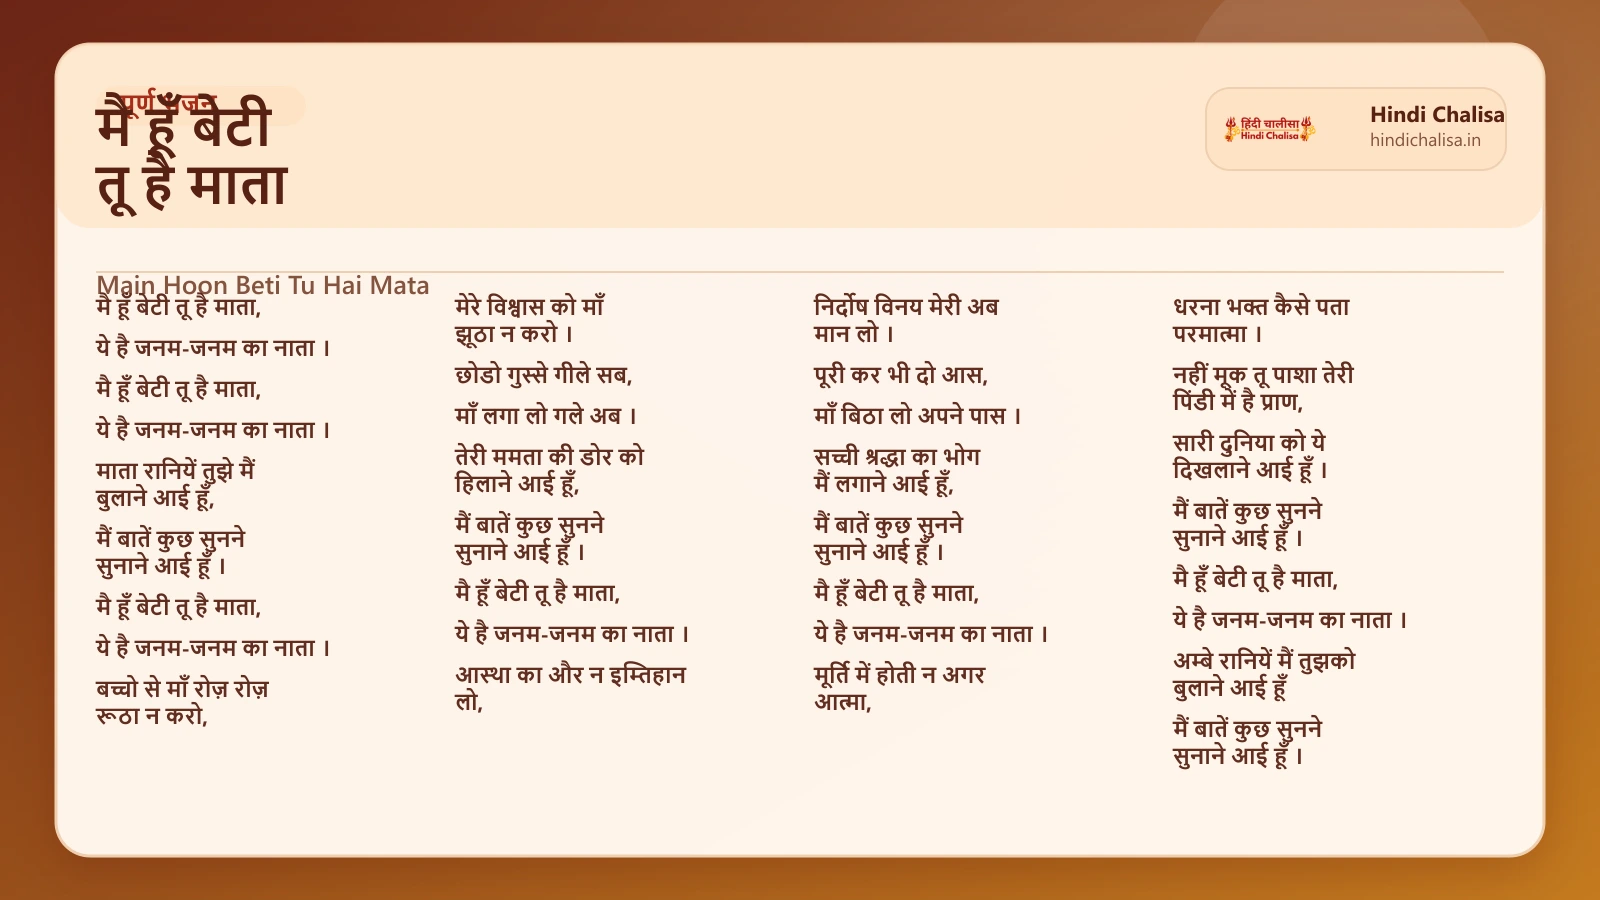 पूर्ण भजन
मै हूँ बेटी
तू है माता
हिंदी चालीसा
Hindi Chalisa
Hindi Chalisa
hindichalisa.in
Main Hoon Beti Tu Hai Mata
मै हूँ बेटी तू है माता,
ये है जनम-जनम का नाता ।
मै हूँ बेटी तू है माता,
ये है जनम-जनम का नाता ।
माता रानियें तुझे मैं
बुलाने आई हूँ,
मैं बातें कुछ सुनने
सुनाने आई हूँ ।
मै हूँ बेटी तू है माता,
ये है जनम-जनम का नाता ।
बच्चो से माँ रोज़ रोज़
रूठा न करो,
मेरे विश्वास को माँ
झूठा न करो ।
छोडो गुस्से गीले सब,
माँ लगा लो गले अब ।
तेरी ममता की डोर को
हिलाने आई हूँ,
मैं बातें कुछ सुनने
सुनाने आई हूँ ।
मै हूँ बेटी तू है माता,
ये है जनम-जनम का नाता ।
आस्था का और न इम्तिहान
लो,
निर्दोष विनय मेरी अब
मान लो ।
पूरी कर भी दो आस,
माँ बिठा लो अपने पास ।
सच्ची श्रद्धा का भोग
मैं लगाने आई हूँ,
मैं बातें कुछ सुनने
सुनाने आई हूँ ।
मै हूँ बेटी तू है माता,
ये है जनम-जनम का नाता ।
मूर्ति में होती न अगर
आत्मा,
धरना भक्त कैसे पता
परमात्मा ।
नहीं मूक तू पाशा तेरी
पिंडी में है प्राण,
सारी दुनिया को ये
दिखलाने आई हूँ ।
मैं बातें कुछ सुनने
सुनाने आई हूँ ।
मै हूँ बेटी तू है माता,
ये है जनम-जनम का नाता ।
अम्बे रानियें मैं तुझको
बुलाने आई हूँ
मैं बातें कुछ सुनने
सुनाने आई हूँ ।